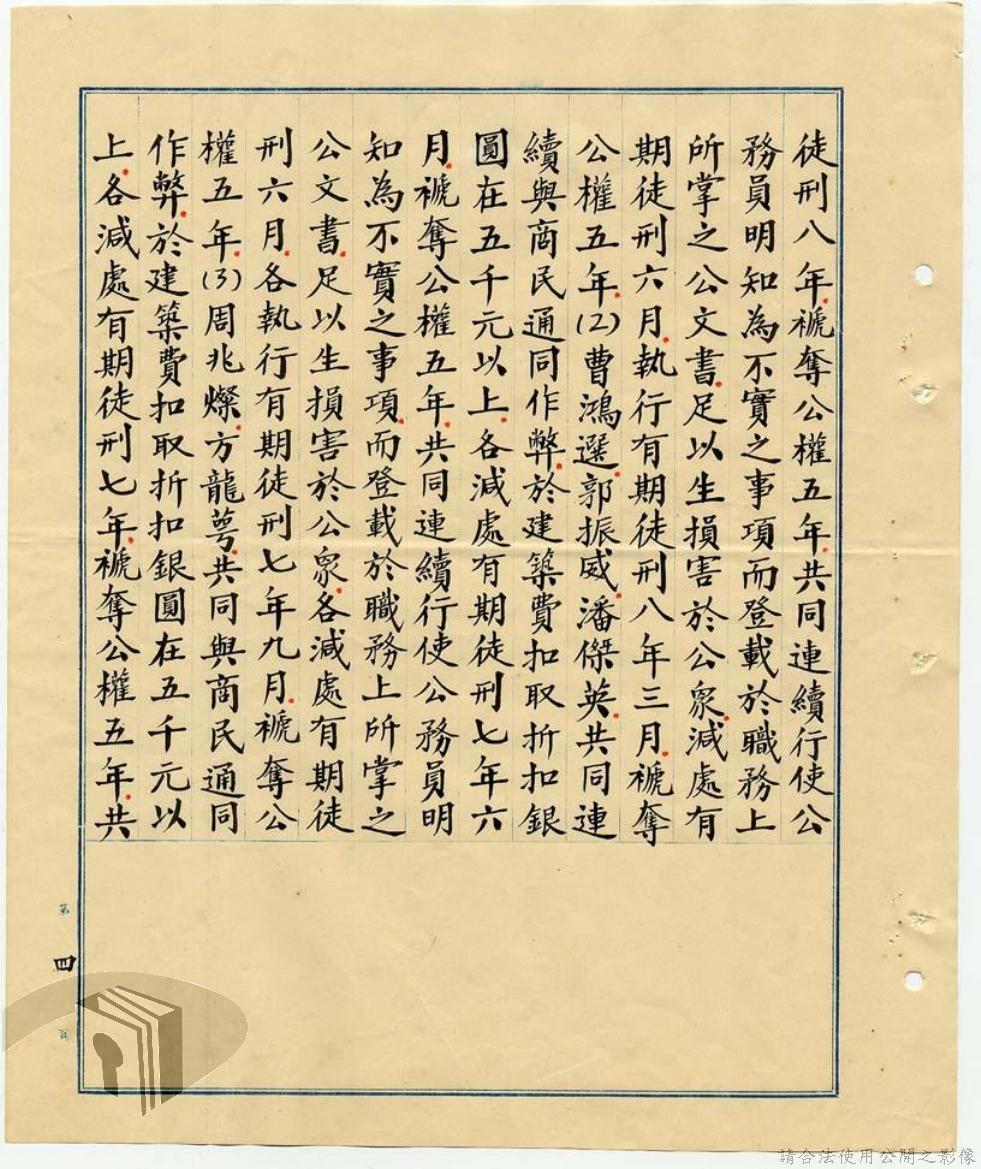 徒刑八年.褫奪公權五年.共同連續行使公
務員明知為不實之事項而登載於職務上
所掌之公文書.足以生損害於公眾.減處有
期徒刑六月.執行有期徒刑八年三月.褫奪
公權五年.(2)曹鴻選.郭振威.潘傑英.共同連
續與商民通同作弊.於建築費扣取折扣銀
圓在五千元以上.各減處有期徒刑七年六
月.褫奪公權五年.共同連續行使公務員明
知為不實之事項.而登載於職務上所掌之
公文書.足以生損害於公眾.各減處有期徒
刑六月.各執行有期徒刑七年九月.褫奪公
權五年.(3)周兆燦.方龍萼.共同與商民通同
作弊.於建築費扣取折扣銀圓在五千元以
上.各減處有期徒刑七年.褫奪公權五年.共
第四頁
請合法使用公開之影像